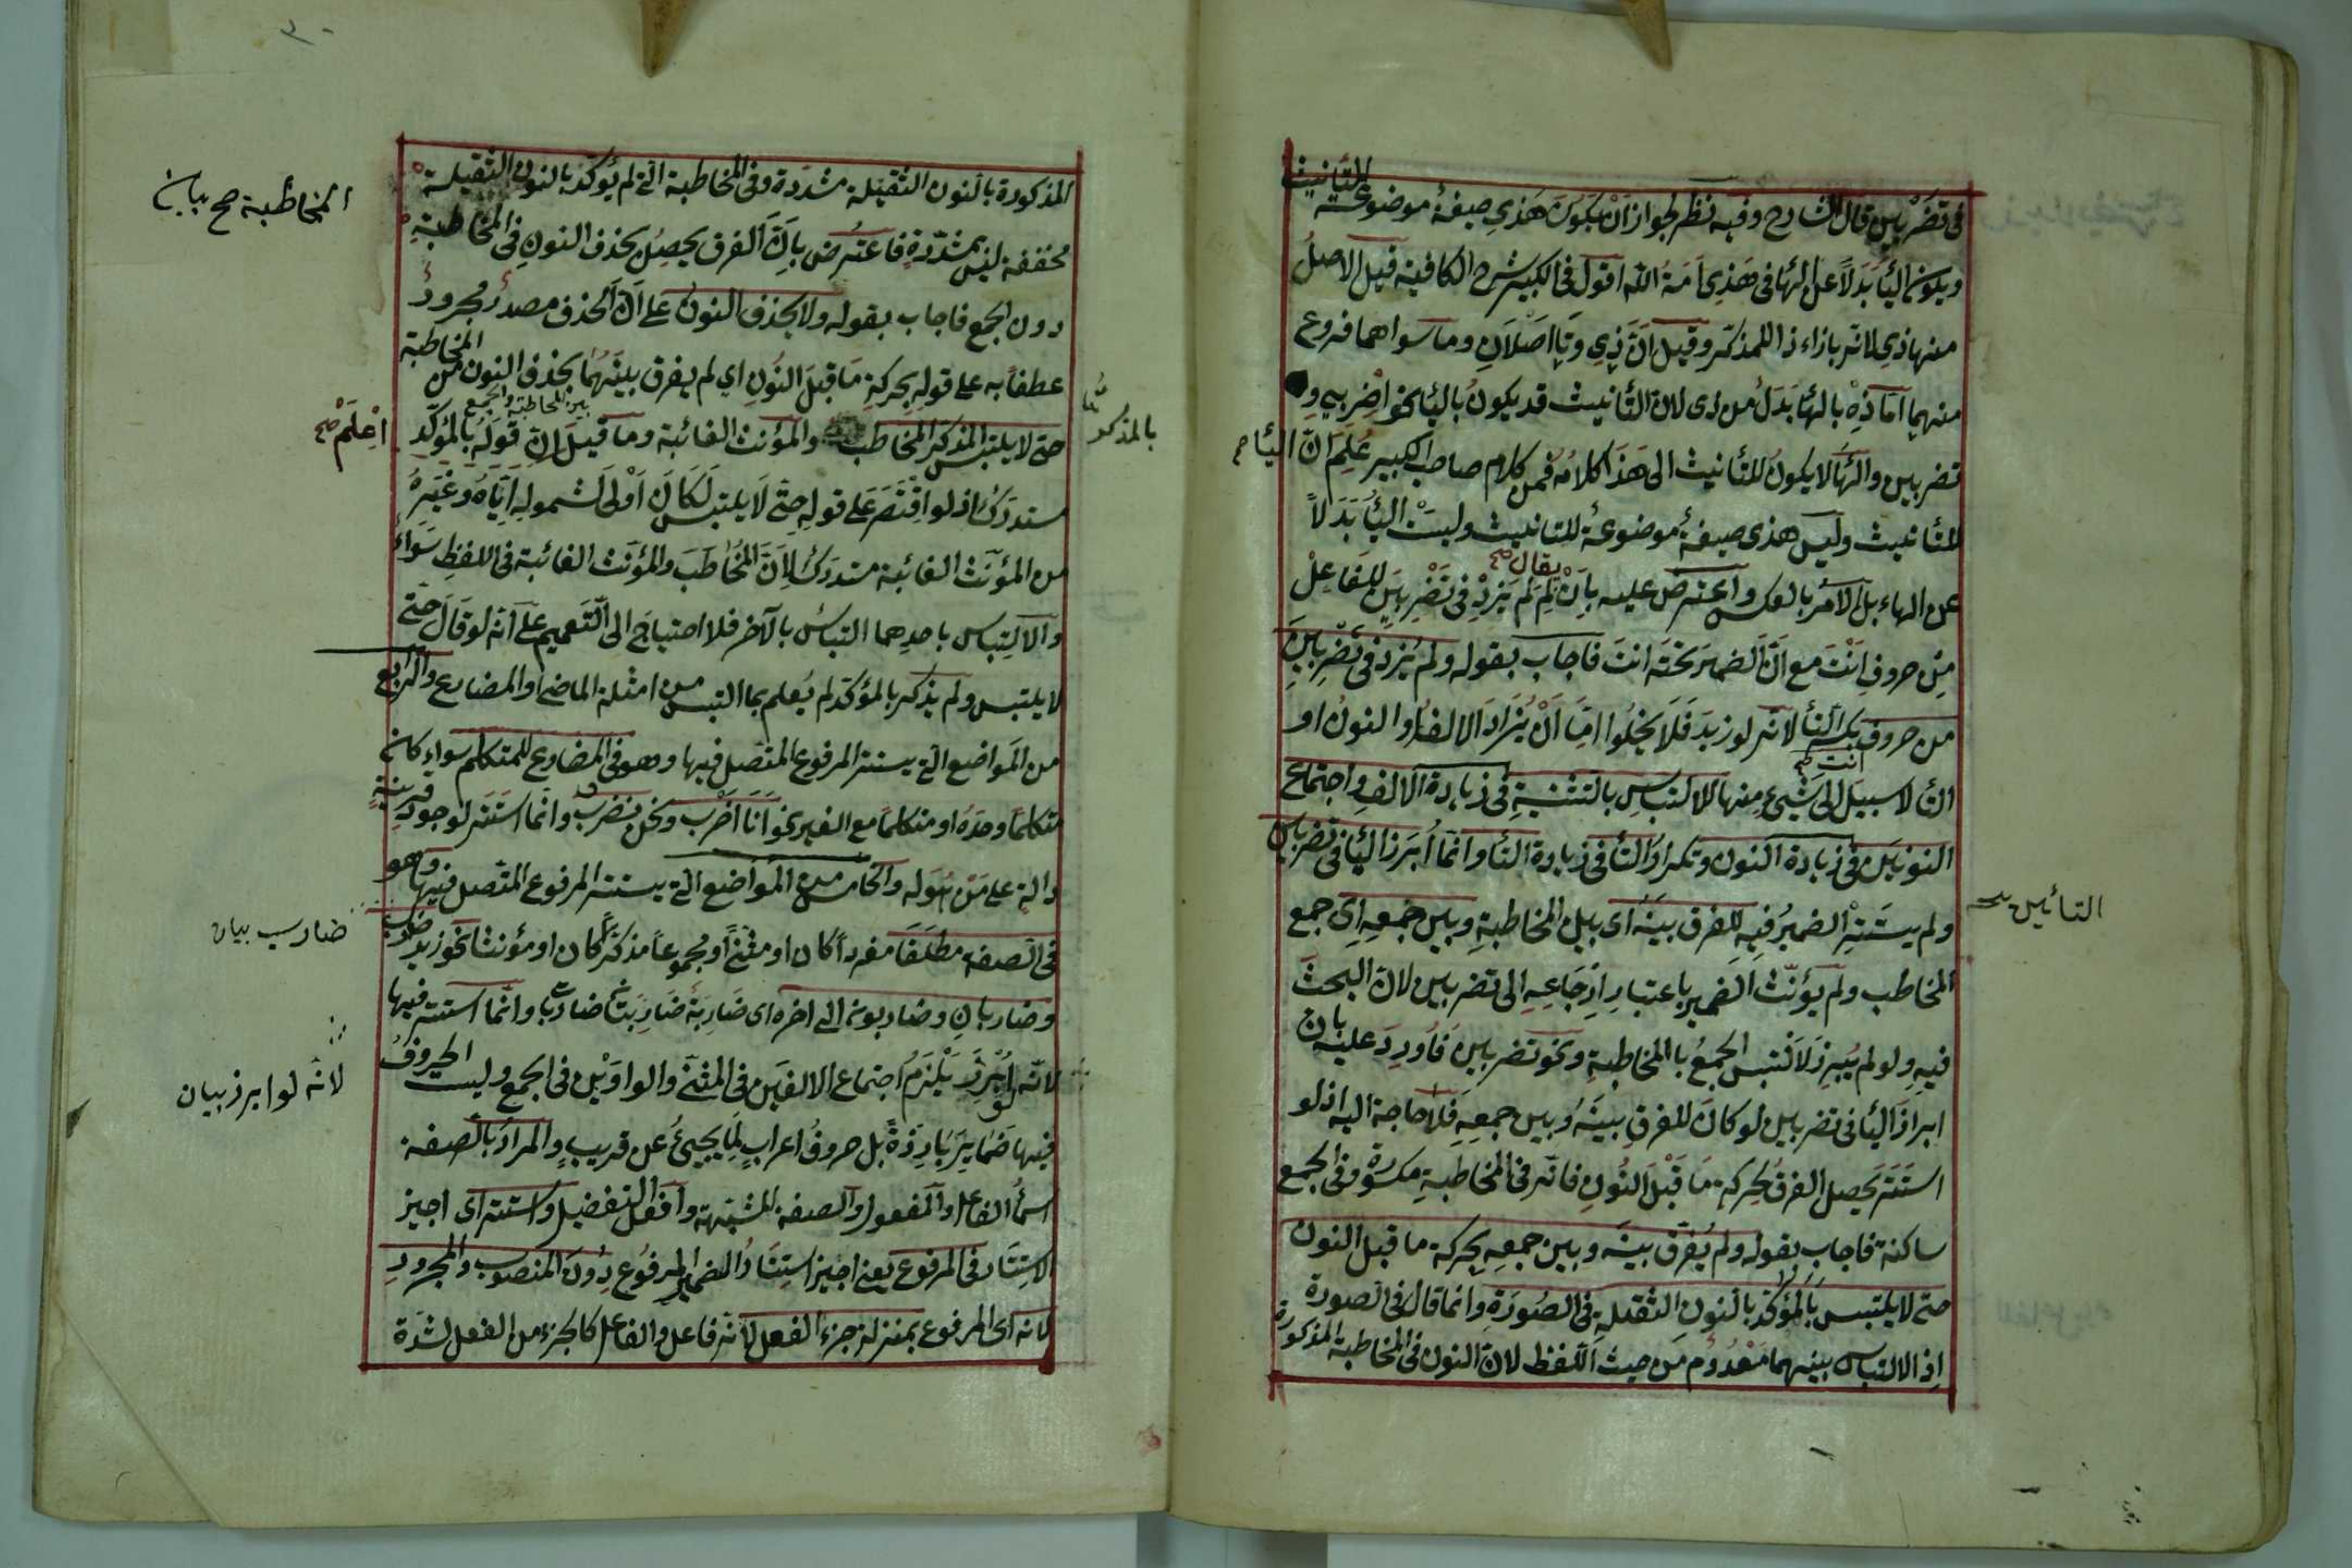 للتأنيث
فى تضربين قال الشارح وفيه نظر لجواز ان يكون هذى صيغة موضوعة
ويكون اليا بدلا عن الها فى هذى امة الله اقول فى الكبير شرح الكافية قيل الاصل
منها ذى لانه بازاء ذا للمذكر وقيل ان ذى وتا اصلان وما سواهما فروع
منهما اما ذه بالها بدل من ذى لان التأنيث قد يكون باليا نحو اضربى و
تضربين والها لا يكون للتأنيث الى هذا كلامه فمن كلام صاحب الكبير علم ان اليا صح
للتأنيث وليس هذى صيغة موضوعة للتانيث وليست اليا بدلا
عن الهاء بل الامر بالعكس واعترض عليه بان يقال صح لم لم يزد فى تضربين للفاعل
من حروف انت مع ان الضمير تحته انت فاجاب بقوله ولم يزد فى تضربين
من حروف انت صح بكسر التأ لانه لو زيد فلا يخلوا اما ان يزاد الالف او النون او
التأ لا سبيل الى شيء منها للالتباس بالتثنية فى زيادة الالف واجتماع
النونين فى زيادة النون وتكرار التأ فى زيادة التأ وانما ابرز اليا فى تضربين
ولم يستتر الضمير فيه للفرق بينه اى بين المخاطبة وبين جمعه اى جمع
التائين
المخاطب ولم يؤنث الضمير باعتبار ارجاعه الى تضربين لان البحث
فيه ولو لم يبرز لالتبس الجمع با المخاطبة ونحو تضربين فاورد عليه بان
ابراز اليا فى تضربين لو كان للفرق بينه وبين جمعه فلا حاجة اليه اذ لو
استتر يحصل الفرق بحركة ما قبل النون فانه فى المخاطبة مكسورة وفى الجمع
ساكنة فاجاب بقوله ولم يفرق بينه وبين جمعه بحركة ما قبل النون
حتى لا يلتبس بالمؤكد بالنون الثقيلة فى الصورة وانما قال فى الصورة
اذ الالتباس بينهما معدوم من حيث اللفظ لان النون فى المخاطبة المذكورة
المذكورة بالنون الثقيلة مشددة وفى المخاطبة التى لم يؤكد بالنون الثقيلة
المخاطبة صح بيان
مخففة ليس بمشددة فاعترض بان الفرق يحصل بحذف النون فى المخاطبة
دون الجمع فاجاب بقوله ولا بحذف النون على ان الحذف مصدر مجرور
عطفا به على قوله بحركة ما قبل النون اى لم يفرق بينهما بحذف النون من المخاطبة
بين المخاطبة والجمع
حتى لا يلتبس المذكر المخاطب والمؤنث الغائبة وما قيل ان قوله بالمؤكد
بالمذكر
اعلم صح
مستدرك اذ لو اقتصر على قوله حتى لا يلتبس لكان اولى لشموله اياه وغيره
من المؤنث الغائبة مستدرك لان المخاطب والمؤنث الغائبة فى اللفظ سواء
والالتباس باحدهما التباس بالآخر فلا احتياج الى التعميم على انه لو قال حتى
لا يلتبس ولم يذكر بالمؤكد لم يعلم بما التبس من امثلة الماضى او المضارع والرابع
من المواضع التى يستتر المرفوع المتصل فيها وهو فى المضارع للمتكلم سواء كان
متكلما وحده او متكلما مع الغير نحو انا اضرب ونحن نضرب وانما استتر لوجود قرينة
دالة على من هو له والخامس من المواضع التى يستتر المرفوع المتصل فيها وهو
فى الصفة مطلقا مفردا كان او مثنى او مجموعا مذكرا كان او مؤنثا نحو زيد ضارب
ضارب بيان
وضاربان وضاربون الى اخره اى ضاربة ضاربتان ضاربات وانما استتر فيها
لانه لو ابرز يلزم اجتماع الالفين فى المثنى والواوين فى الجمع وليست الحروف
لانه لو ابرز بيان
فيها ضماير بارزة بل حروف اعراب لما يجيئ عن قريب والمراد بالصفة
اسمأ الفاعل والمفعول والصفة المشبهة وافعل التفضيل واستتر اى اجيز
الاستتار فى المرفوع يعنى اجيز استتار الضمير المرفوع دون المنصوب والمجرور
لانه اى المرفوع بمنزلة جزء الفعل لانه فاعل والفاعل كالجزء من الفعل لشدة